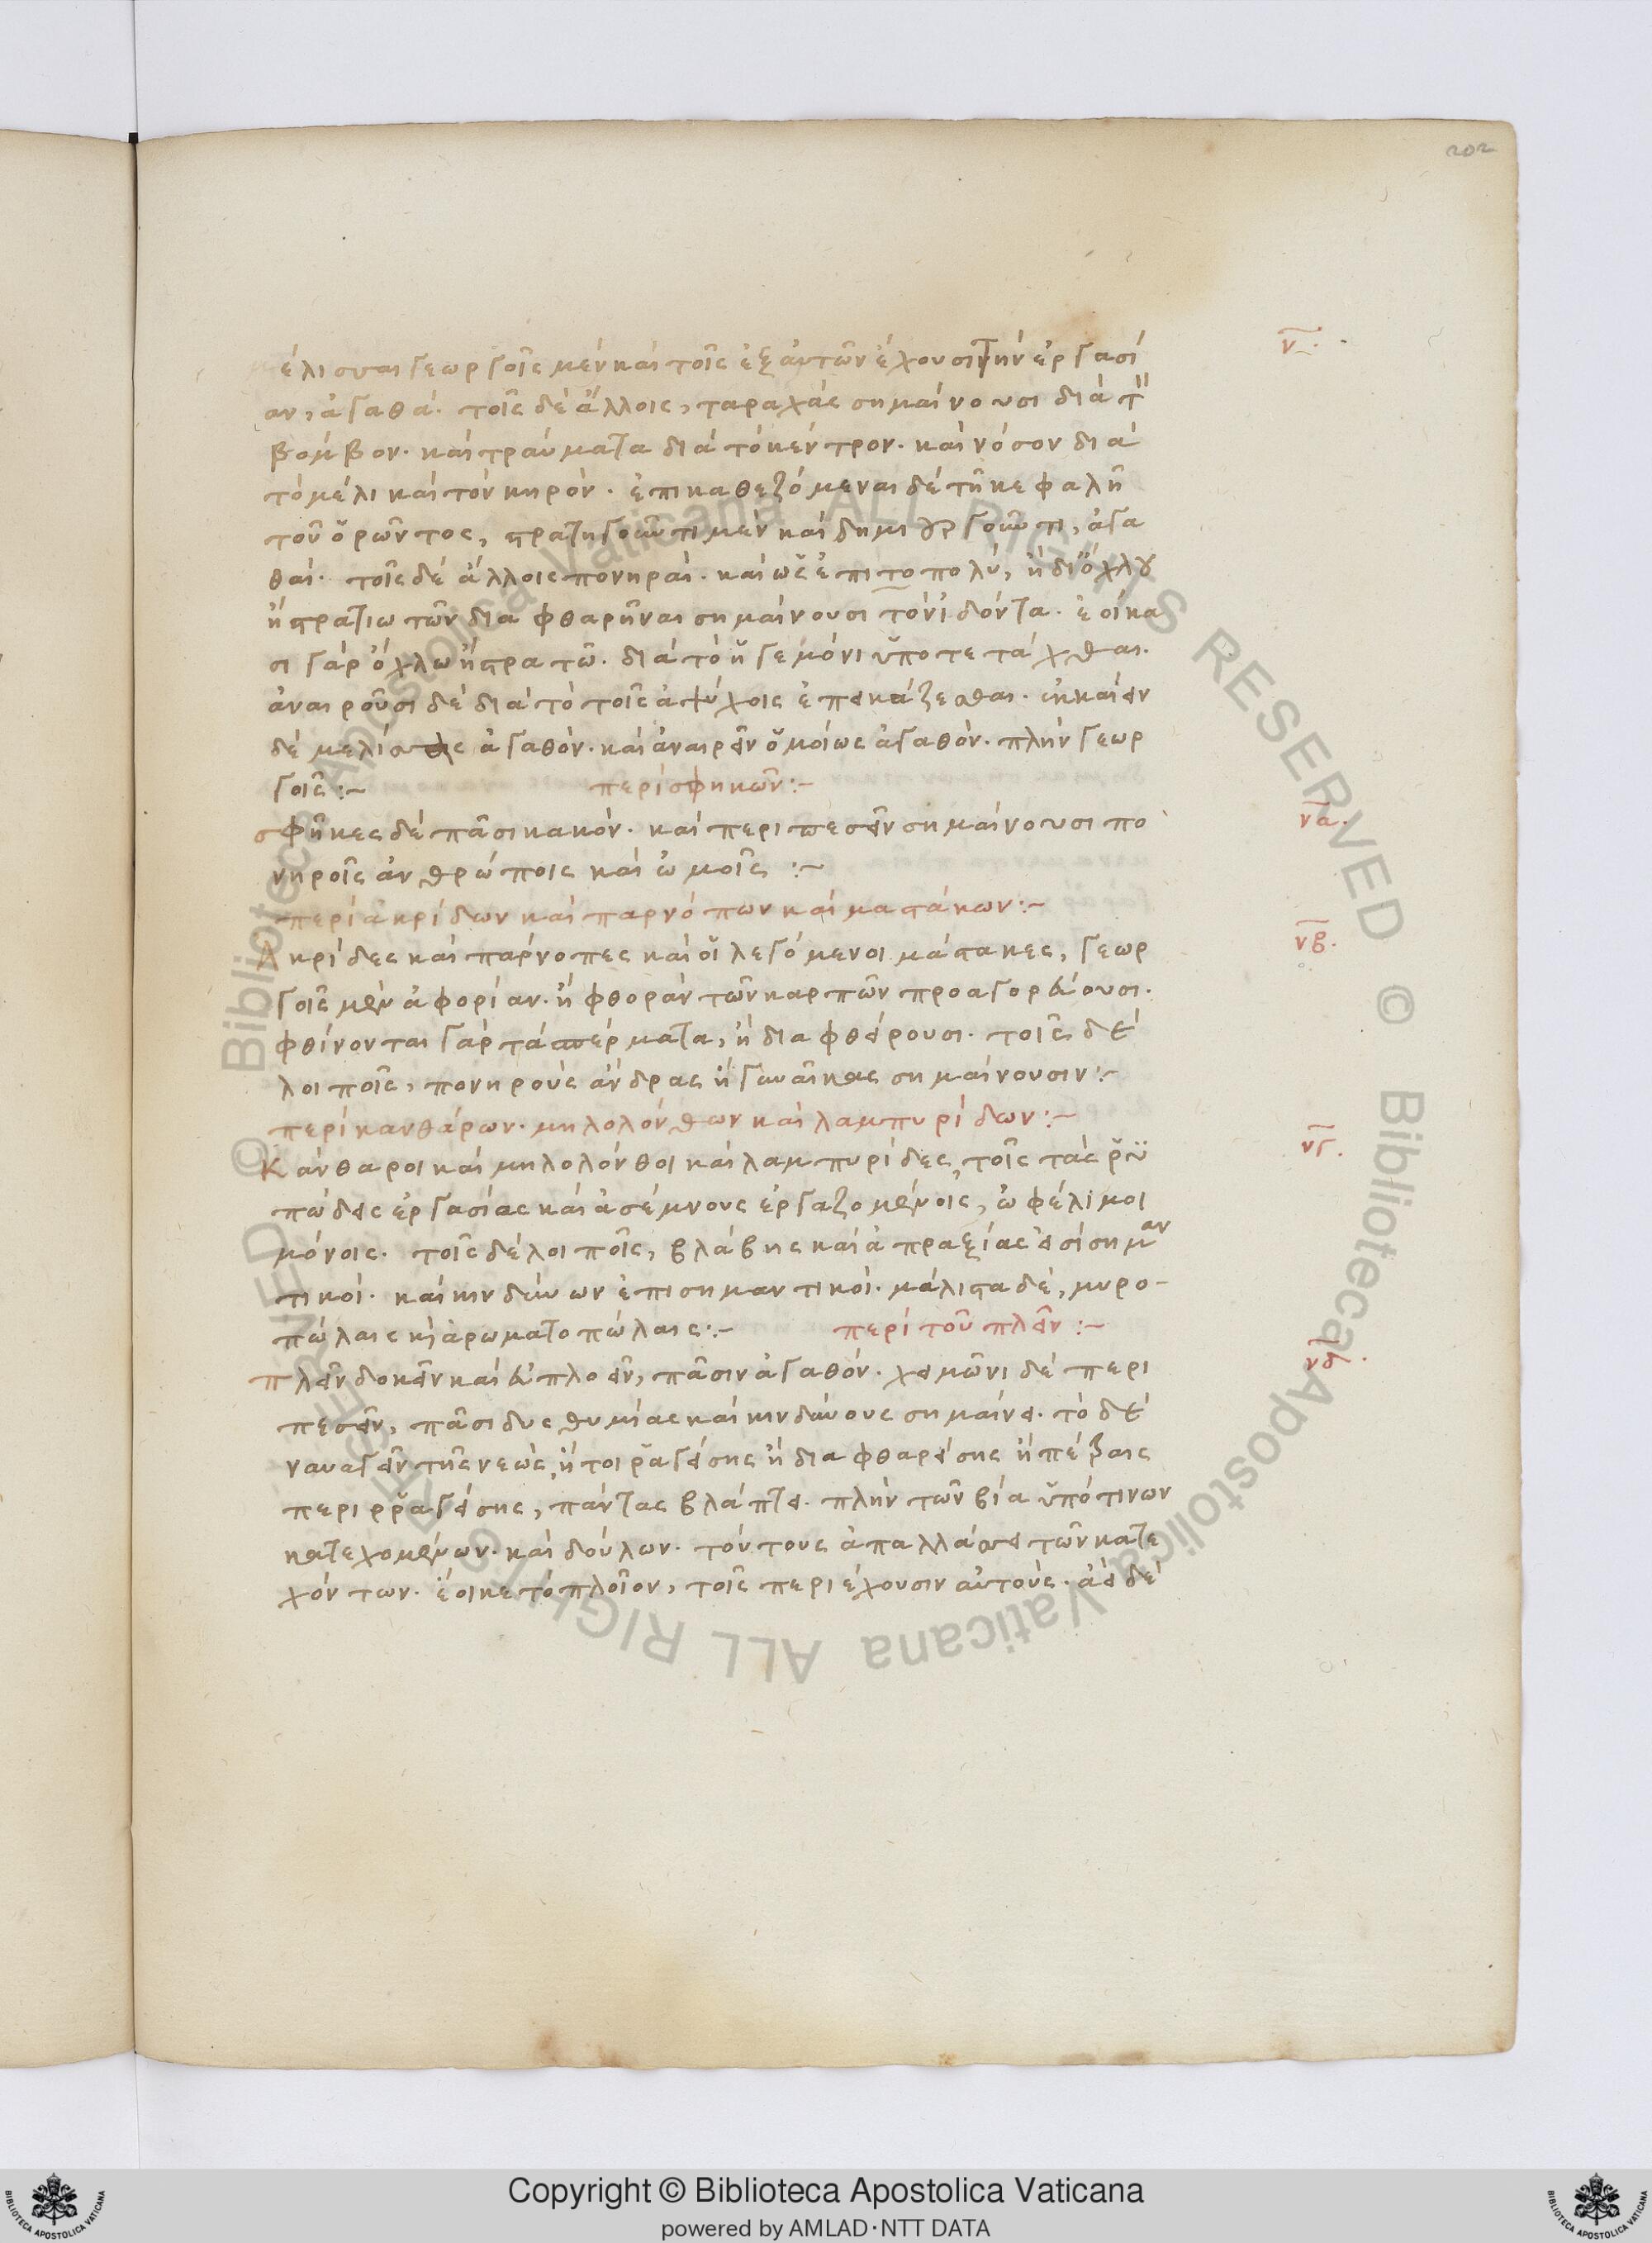 202
ν.
έλισσαι γεωργοῖς μὲν καὶ τοῖς ἐξ αὐτῶν ἔχουσι τὴν ἐργασί
αν, ἀγαθά. τοῖς δὲ ἄλλοις, ταραχὰς σημαίνουσι διὰ τ
βόμβον. καὶ τραύματα διὰ τὸ κέντρον. καὶ νόσον διὰ
τὸ μέλι καὶ τὸν κηρόν. ἐπικαθεζόμεναι δὲ τῇ κεφαλῇ
τοῦ ὁρῶντος, στρατηγοῦντι μὲν καὶ δημιουργοῦντι, ἀγα
θαί. τοῖς δὲ ἄλλοις πονηραί. καὶ ὡς ἐπιτοπολύ, ἢ δι' ὄχλου
ἢ στρατιωτῶν διαφθαρῆναι σημαίνουσι τὸν ἰδόντα. ἐοίκα
σι γὰρ ὄχλω ἢ στρατῶ. διὰ τὸ ἡγεμόνι ὑποτετάχθαι.
ἀναιροῦσι δὲ διὰ τὸ τοῖς ἀψύχοις ἐπεικάζεσθαι.
δὲ μελίσσας ἀγαθόν. καὶ ἀναιρεῖν ὁμοίως ἀγαθόν. πλὴν γεωρ
γοῖς :~ περὶ σφηκῶν :~
να.
σφῆκες δὲ πᾶσι κακόν. καὶ περιπεσεῖν σημαίνουσι πο
νηροῖς ἀνθρώποις καὶ ὠμοῖς :~
περὶ ἀκρίδων καὶ παρνόπων καὶ μαστάκων :~
νβ.
Ἀκρίδες καὶ πάρνοπες καὶ οἱ λεγόμενοι μάστακες, γεωρ
γοῖς μὲν ἀφορίαν. ἢ φθορὰν τῶν καρπῶν προαγορεύουσι.
φθίνονται γὰρ τὰ σπέρματα, ἢ διαφθείρουσι. τοῖς δὲ
λοιποῖς, πονηροὺς ἄνδρας ἢ γυναῖκας σημαίνουσιν :~
περὶ κανθάρων. μηλολόνθων καὶ λαμπυρίδων :~
νγ.
Κάνθαροι καὶ μηλολόνθοι καὶ λαμπυρίδες, τοῖς τὰς ῥυ
πώδεις ἐργασίας καὶ ἀσέμνους ἐργαζομένοις, ὠφέλιμοι
μόνοις. τοῖς δὲ λοιποῖς, βλάβης καὶ ἀπραξίας εἰσὶ σημαν
τικοί. καὶ κινδύνων ἐπισημαντικοί. μάλιστα δὲ, μυρο-
πώλαις κὶ ἀρωματοπώλαις :~ περὶ τοῦ πλεῖν :~
νδ.
πλεῖν δοκεῖν καὶ εὐπλοεῖν, πᾶσιν ἀγαθόν. χειμῶνι δὲ περι
πεσεῖν, πᾶσι δυσθυμίας καὶ κινδύνους σημαίνει. τὸ δὲ
ναυαγεῖν τῆς νεὼς, ἤτοι ῥαγείσης ἢ διαφθαρείσης ἢ πέτραις
περιρραγείσης, πάντας βλάπτει. πλὴν τῶν βία ὑπό τινων
κατεχομένων. καὶ δούλων. τούτους ἀπαλλάσσει τῶν κατε
χόντων. ἔοικε τὸ πλοῖον, τοῖς περιέχουσιν αὐτούς. ἀεὶ δὲ
© Biblioteca Apostolica Vaticana ALL RIGHTS RESERVED © Biblioteca Apostolica Vaticana ALL RIGHTS RESERVED
Copyright © Biblioteca Apostolica Vaticana
powered by AMLAD·NTT DATA
BIBLIOTECA APOSTOLICA VATICANA
BIBLIOTECA APOSTOLICA VATICANA